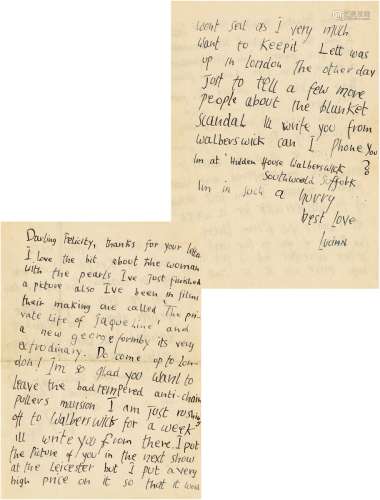 Darling Felicity, thanks for your letter
I love the bit about the woman
with the pearls I've just finished
a peture also I've been in films
their making are called The pri-
vate Life of Jaqueline' and
a new george formby its very
extrodinary. Do come up to Lon-
don! I'm so glad you want to
leave the bad tempered anti-chain
pullers mansion I am just rushing
off to Walberswick for a week
Ill write you from there. I put
the Picture of you in the next show
at the Leicester but I put a very
high price on it so that it wont
wont sell as I very much
want to keep it Lett was
up in London The other day
Just to tell a few more
people about the blanket
Scandal Ill write you from
Walberswick can I Phone you
Im at 'Hidden House Walberswick ?
Southwold Suffolk
Im in such a hurry
best Love
Lucian